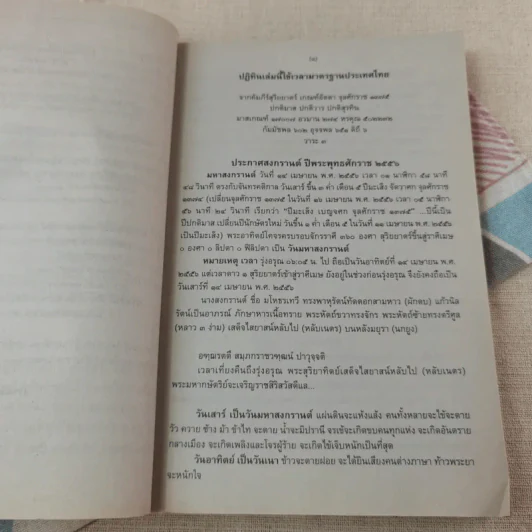 ปฏิทินเล่มนี้ใช้เวลามาตรฐานประเทศไทย
จากคัมภีร์สุริยยาตร์ เกณฑ์อัตตา จุลศักราช ๑๓๗๕
ปกติมาส ปกติวาร ปกติสุรทิน
กัมมัชพล ๖๐๒ อุจจพล ๖๕๑ ดิถี ๖
วาระ ๓
ประกาศสงกรานต์ ปีพระพุทธศักราช ๒๕๕๖
มหาสงกรานต์ วันที่ ๑๔ เมษายน พ.ศ. ๒๕๕๖ เวลา ๐๑ นาฬิกา ๕๘ นาที
๔๘ วินาที ตรงกับจันทรคติกาล วันเสาร์ ขึ้น ๓ ค่ำ เดือน ๕ ปีมะเส็ง จัตวาศก จุลศักราช
๑๓๗๔ (เปลี่ยนจุลศักราช ๑๓๗๕ ในวันที่ ๑๖ เมษายน พ.ศ. ๒๕๕๖ เวลา ๐๕ นาฬิกา
๕๖ นาที ๒๔ วินาที เรียกว่า "ปีมะเส็ง เบญจศก จุลศักราช ๑๓๗๕" ...ปีนี้เป็น
ปีปกติมาส เปลี่ยนปีนักษัตรใหม่ วันขึ้น ๑ ค่ำ เดือน ๕ ในวันที่ ๑๑ เมษายน พ.ศ. ๒๕๕๖
เป็นปีมะเส็ง) พระอาทิตย์โคจรครบรอบจักรราศี ๓๖๐ องศา สุริยยาตร์ขึ้นสู่ราศีเมษ
๐ องศา ๐ ลิปดา ๐ ฟิลิปดา เป็น วันมหาสงกรานต์
หมายเหตุ เวลา รุ่งอรุณ ๐๖:๐๕ น. ไป ถือเป็นวันอาทิตย์ที่ ๑๔ เมษายน พ.ศ.
๒๕๕๖ แต่เวลาดาว ๑ สุริยยาตร์เข้าสู่ราศีเมษ ยังอยู่ในช่วงก่อนรุ่งอรุณ จึงยังคงถือเป็น
วันเสาร์ที่ ๑๔ เมษายน พ.ศ. ๒๕๕๖
นางสงกรานต์ ชื่อ มโหธรเทวี ทรงพาหุรัดทัดดอกสามหาว (ผักตบ) แก้วนิล
รัตน์เป็นอาภรณ์ ภักษาหารเนื้อทราย พระหัตถ์ขวาทรงจักร พระหัตถ์ซ้ายทรงตรีศูล
(หลาว ๓ ง่าม) เสด็จไสยาสน์หลับไป (หลับเนตร) บนหลังมยุรา (นกยูง)
เวลาเที่ยงคืนถึงรุ่งอรุณ พระสุริยาทิตย์เสด็จไสยาสน์หลับไป (หลับเนตร)
พระมหากษัตริย์จะเจริญราชสิริสวัสดีแล...
วันเสาร์ เป็นวันมหาสงกรานต์ แผ่นดินจะแห้งแล้ง คนทั้งหลายจะใช้จะตาย
วัว ควาย ช้าง ม้า ข้าไท จะตาย น้ำจะมีปรานี จรเข้จะเกิดขบคนทุกแห่ง จะเกิดอันตราย
กลางเมือง จะเกิดเพลิงและโจรผู้ร้าย จะเกิดใช้เจ็บหนักเป็นที่สุด
วันอาทิตย์ เป็นวันเนา ข้าวจะตายฝอย จะได้ยินเสียงคนต่างภาษา ท้าวพระยา
จะหนักใจ